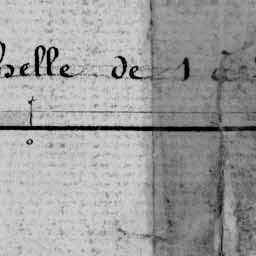 helle de 1
0